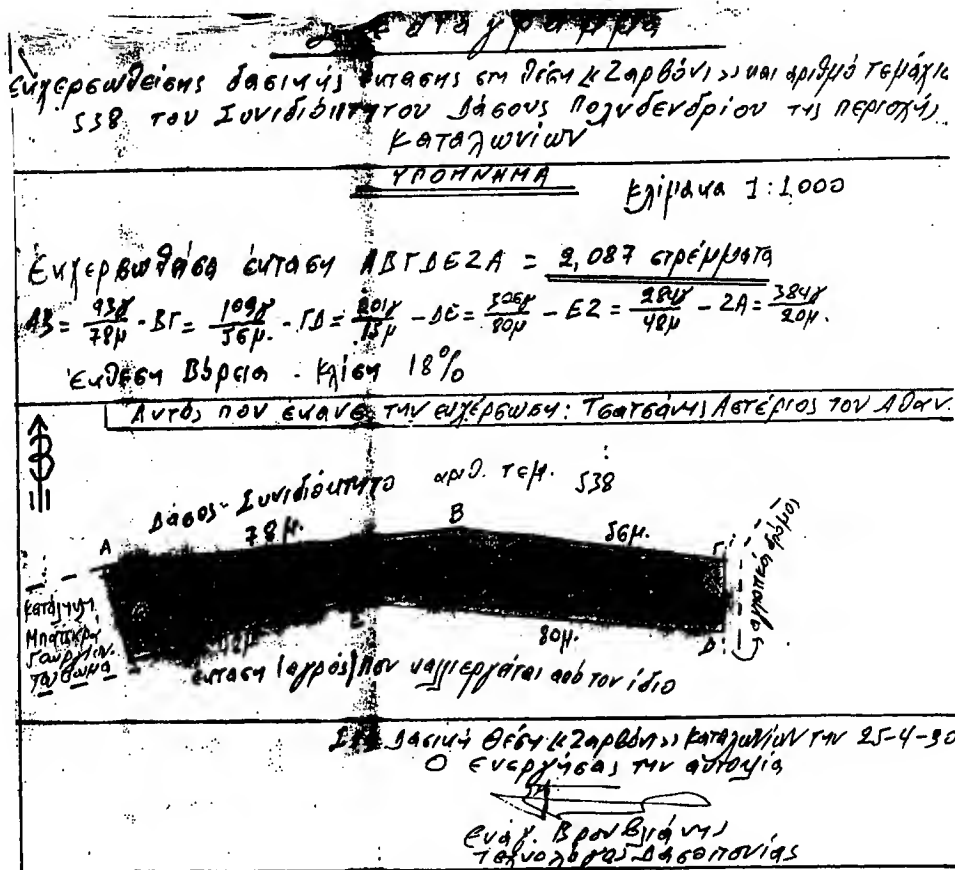 Σχεδιάγραμμα
Εκχερσωθείσης δασικής έκτασης στη θέση «Ζαρβόνι» και αριθμό τεμάχια
538 του Συνιδιόκτητου Δάσους Πολυδενδρίου της περιοχής
Καταλωνίων
ΥΠΟΜΝΗΜΑ
Κλίμακα 1:1.000
Εκχερσωθείσα έκταση ΑΒΓΔΕΖΑ = 2,087 στρέμματα
ΑΒ = 93γ/78μ - ΒΓ = 109γ/56μ. - ΓΔ = 201γ/15μ - ΔΕ = 306γ/80μ - ΕΖ = 284γ/48μ - ΖΑ = 384γ/20μ.
Έκθεση Βόρεια - Κλίση 18%
Αυτός που έκανε την εκχέρσωση: Τσατσάνης Αστέριος του Αθαν.
Δάσος - Συνιδιόκτητο αριθ. τεμ. 538
78μ. Β 56μ.
Α Γ
αγροτικός δρόμος
80μ. Δ
έκταση (αγρός) που καλλιεργείται από τον ίδιο
Δασική Θέση «Ζαρβόνι» Καταλωνίων την 25-4-90
Ο ενεργήσας την αυτοψία
Τεχνολόγος Δασοπονίας